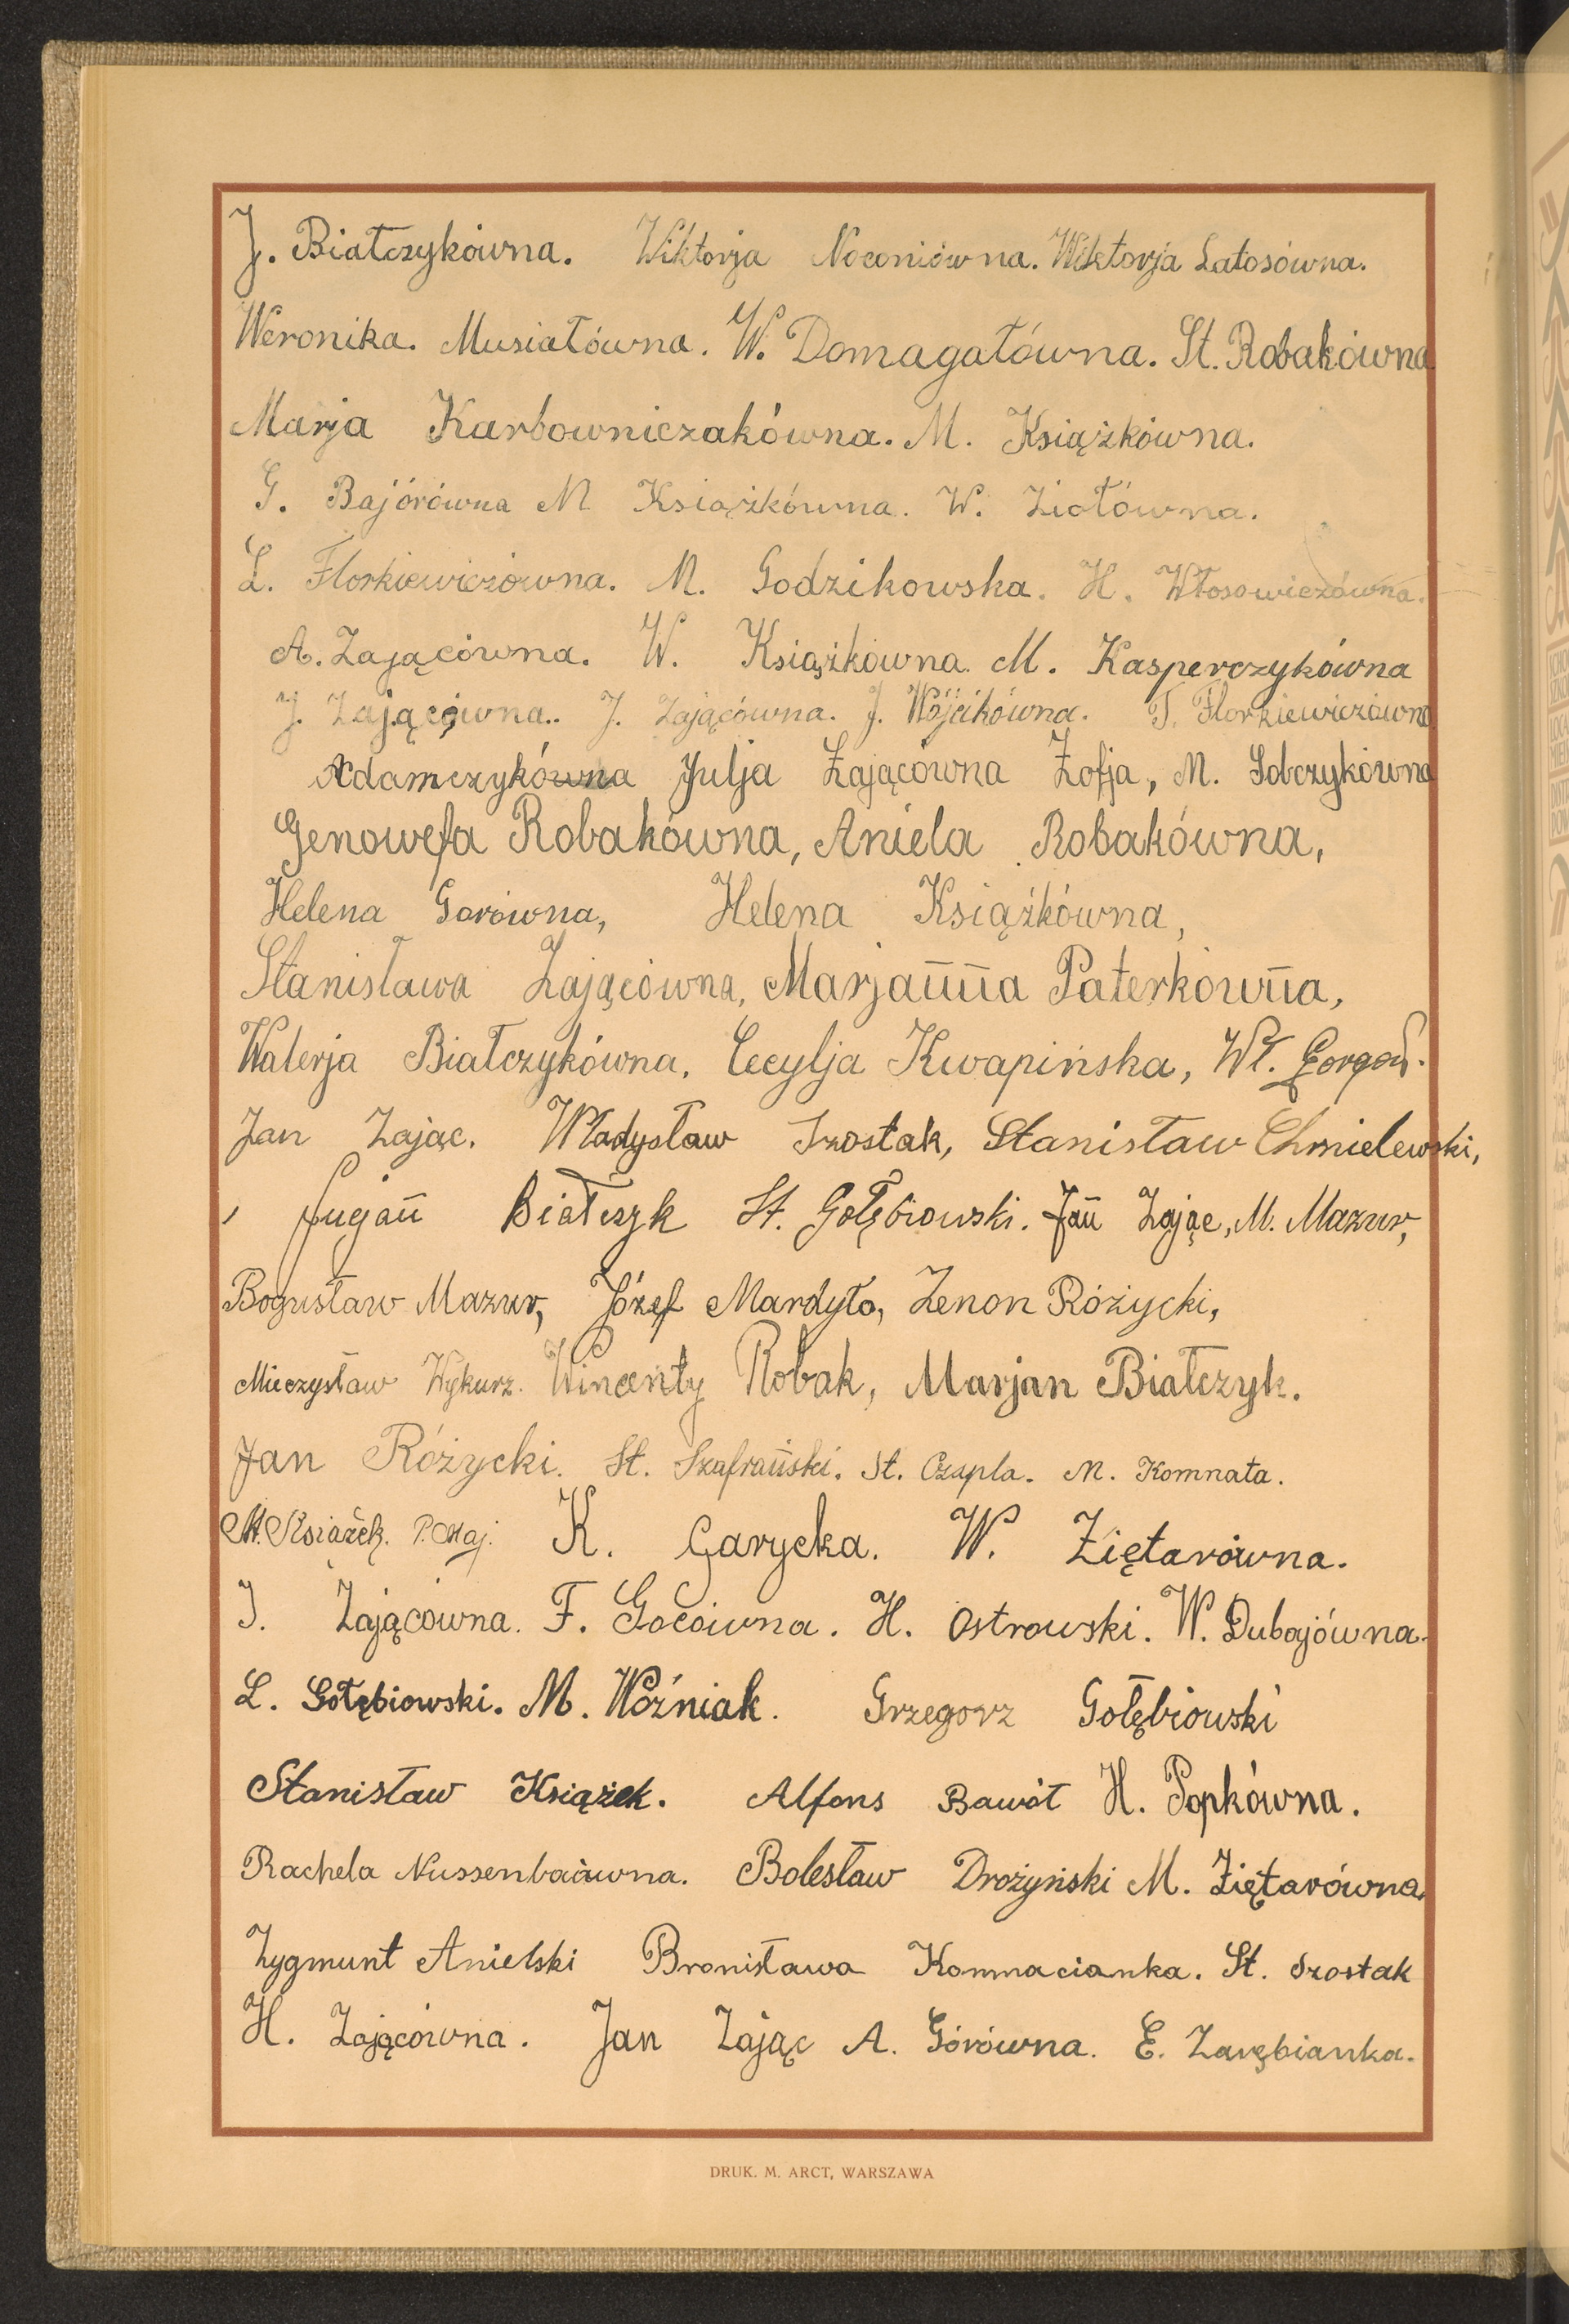 J. Białczykówna. Wiktorja Noconiówna. Wiktorja Latosówna.
Weronika. Musiałówna. W. Domagałówna. St. Robakówna
Marja Karbowniczakówna. M. Książkówna.
G. Bajórówna M Książkówna. W. Ziołówna.
L. Florkiewiczówna. M. Godzikowska. H. Włosowiczówna.
A. Zającówna. W. Książkówna. M. Kasperczykówna
J. Zającówna.. J. Zającówna. J. Wójcikówna. T. Florkiewiczówna
Adamczykówna Julja Zającówna Zofja, M. Sobczykówna
Genowefa Robakówna, Aniela Robakówna,
Helena Gorówna, Helena Książkówna,
Stanisława Zającówna, Marjanna Paterkówna,
Walerja Białczykówna, Cecylja Kwapińska, Wł. Gorgoń.
Jan Zając. Władysław Szostak, Stanisław Chmielewski,
Białczyk St. Gołębiowski. Jan Zając, M. Mazur,
Bogusław Mazur, Józef Mardyło, Zenon Różycki,
Mieczysław Wykurz. Wincenty Robak, Marjan Białczyk.
Jan Różycki. St. Szafrański. St. Czapla. M. Komnata.
M. Książek. P. Maj. K. Garycka. W. Ziętarówna.
J. Zającówna. F. Gocówna. H. Ostrowski. W. Dubajówna.
L. Gołębiowski. M. Woźniak. Grzegorz Gołębiowski
Stanisław Książek. Alfons Bawół H. Popkówna.
Rachela Nussenbaówna. Bolesław Drożyński M. Ziętarówna.
Zygmunt Anielski Bronisława Komnacianka. St. Szostak
H. Zającówna. Jan Zając A. Górówna. E. Zarębianka.
DRUK. M. ARCT, WARSZAWA